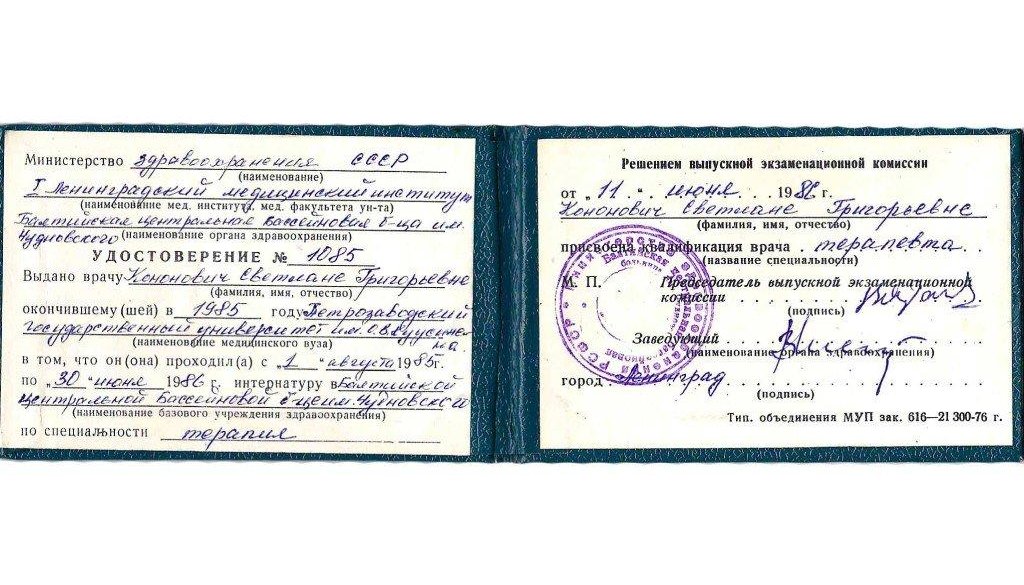 Министерство здравоохранения СССР
(наименование)
I Ленинградский медицинский институт
(наименование мед. института, мед. факультета ун-та)
Балтийская центральная бассейновая б-ца им.
Чудновского (наименование органа здравоохранения)
УДОСТОВЕРЕНИЕ № 1085
Выдано врачу Кононович Светлане Григорьевне
(фамилия, имя, отчество)
окончившему (шей) в 1985 году Петрозаводский
государственный университет им. О.В. Куусине-
на
(наименование медицинского вуза)
в том, что он(она) проходил(а) с „1“ августа 1985г.
по „30“ июня 1986 г. интернатуру в Балтийской
центральной Бассейновой б-це им. Чудновского
(наименование базового учреждения здравоохранения)
по специальности терапия
Решением выпускной экзаменационной комиссии
от „11“ июня 1986 г.
Кононович Светлане Григорьевне
(фамилия, имя, отчество)
присвоена квалификация врача терапевта.
(название специальности)
М. П. Председатель выпускной экзаменационной
комиссии
(подпись)
Заведующий
(наименование органа здравоохранения)
город Ленинград
(подпись)
Тип. объединения МУП зак. 616—21 300-76 г.
Балтийская
больница
РСФСР